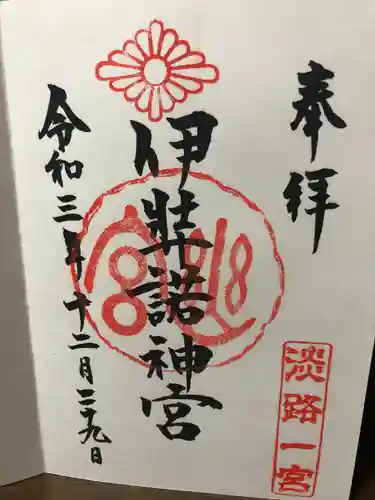 奉拝
淡路一宮
伊弉諾神宮
令和三年十二月二十九日